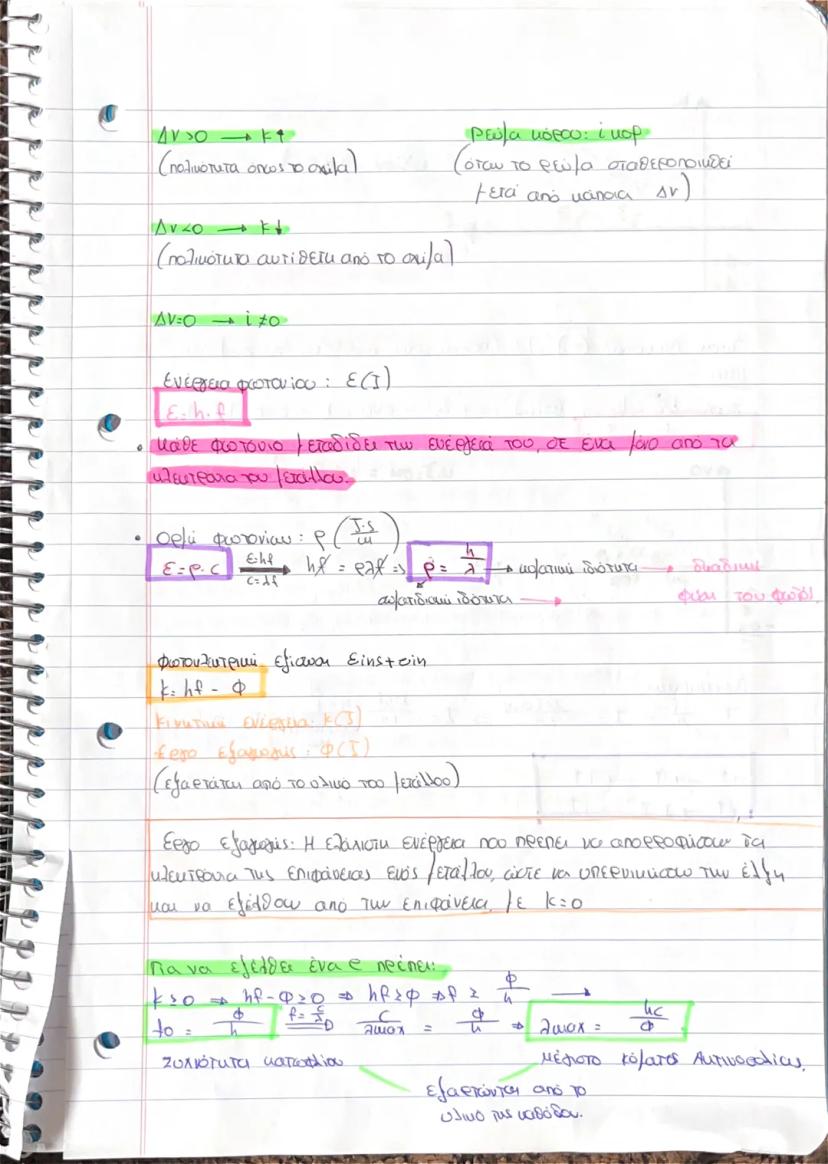 ΔV>0 → K↑
(πολικότητα όπως το σχήμα)
Ρεύμα κόρου: iκορ
(όταν το ρεύμα σταθεροποιηθεί
μετά από κάποια ΔV)
ΔV<0 → K↓
(πολικότητα αντίθετη από το σχήμα)
ΔV=0 → i≠0
Ενέργεια φωτονίου: E(J)
E=h·f
• κάθε φωτόνιο μεταδίδει την ενέργειά του, σε ένα μόνο από τα
ηλεκτρόνια του μετάλλου.
• Ορμή φωτονίου: p (J·s/m)
E=p·c E=hf c=λf → hf = pλf => p = h/λ → κυματική ιδιότητα → δυαδική
σωματιδιακή ιδιότητα → φύση του φωτός
Φωτοηλεκτρική εξίσωση Einstein
K=hf - Φ
Κινητική ενέργεια: K(J)
Έργο εξαγωγής: Φ(J)
(εξαρτάται από το υλικό του μετάλλου)
Έργο εξαγωγής: Η ελάχιστη ενέργεια που πρέπει να απορροφήσουν τα
ηλεκτρόνια της επιφάνειας ενός μετάλλου, ώστε να υπερνικήσουν την έλξη
και να εξέλθουν από την επιφάνεια, με K=0
Για να εξέλθει ένα e πρέπει:
K≥0 ⇒ hf-Φ≥0 ⇒ hf≥Φ ⇒ f ≥ Φ/h →
fo = Φ/h f=c/λ ⇒ c/λmax = Φ/h ⇒ λmax = hc/Φ
Συχνότητα κατωφλίου
Μέγιστο κύματος Ακτινοβολίας.
εξαρτώνται από το
υλικό της καθόδου.